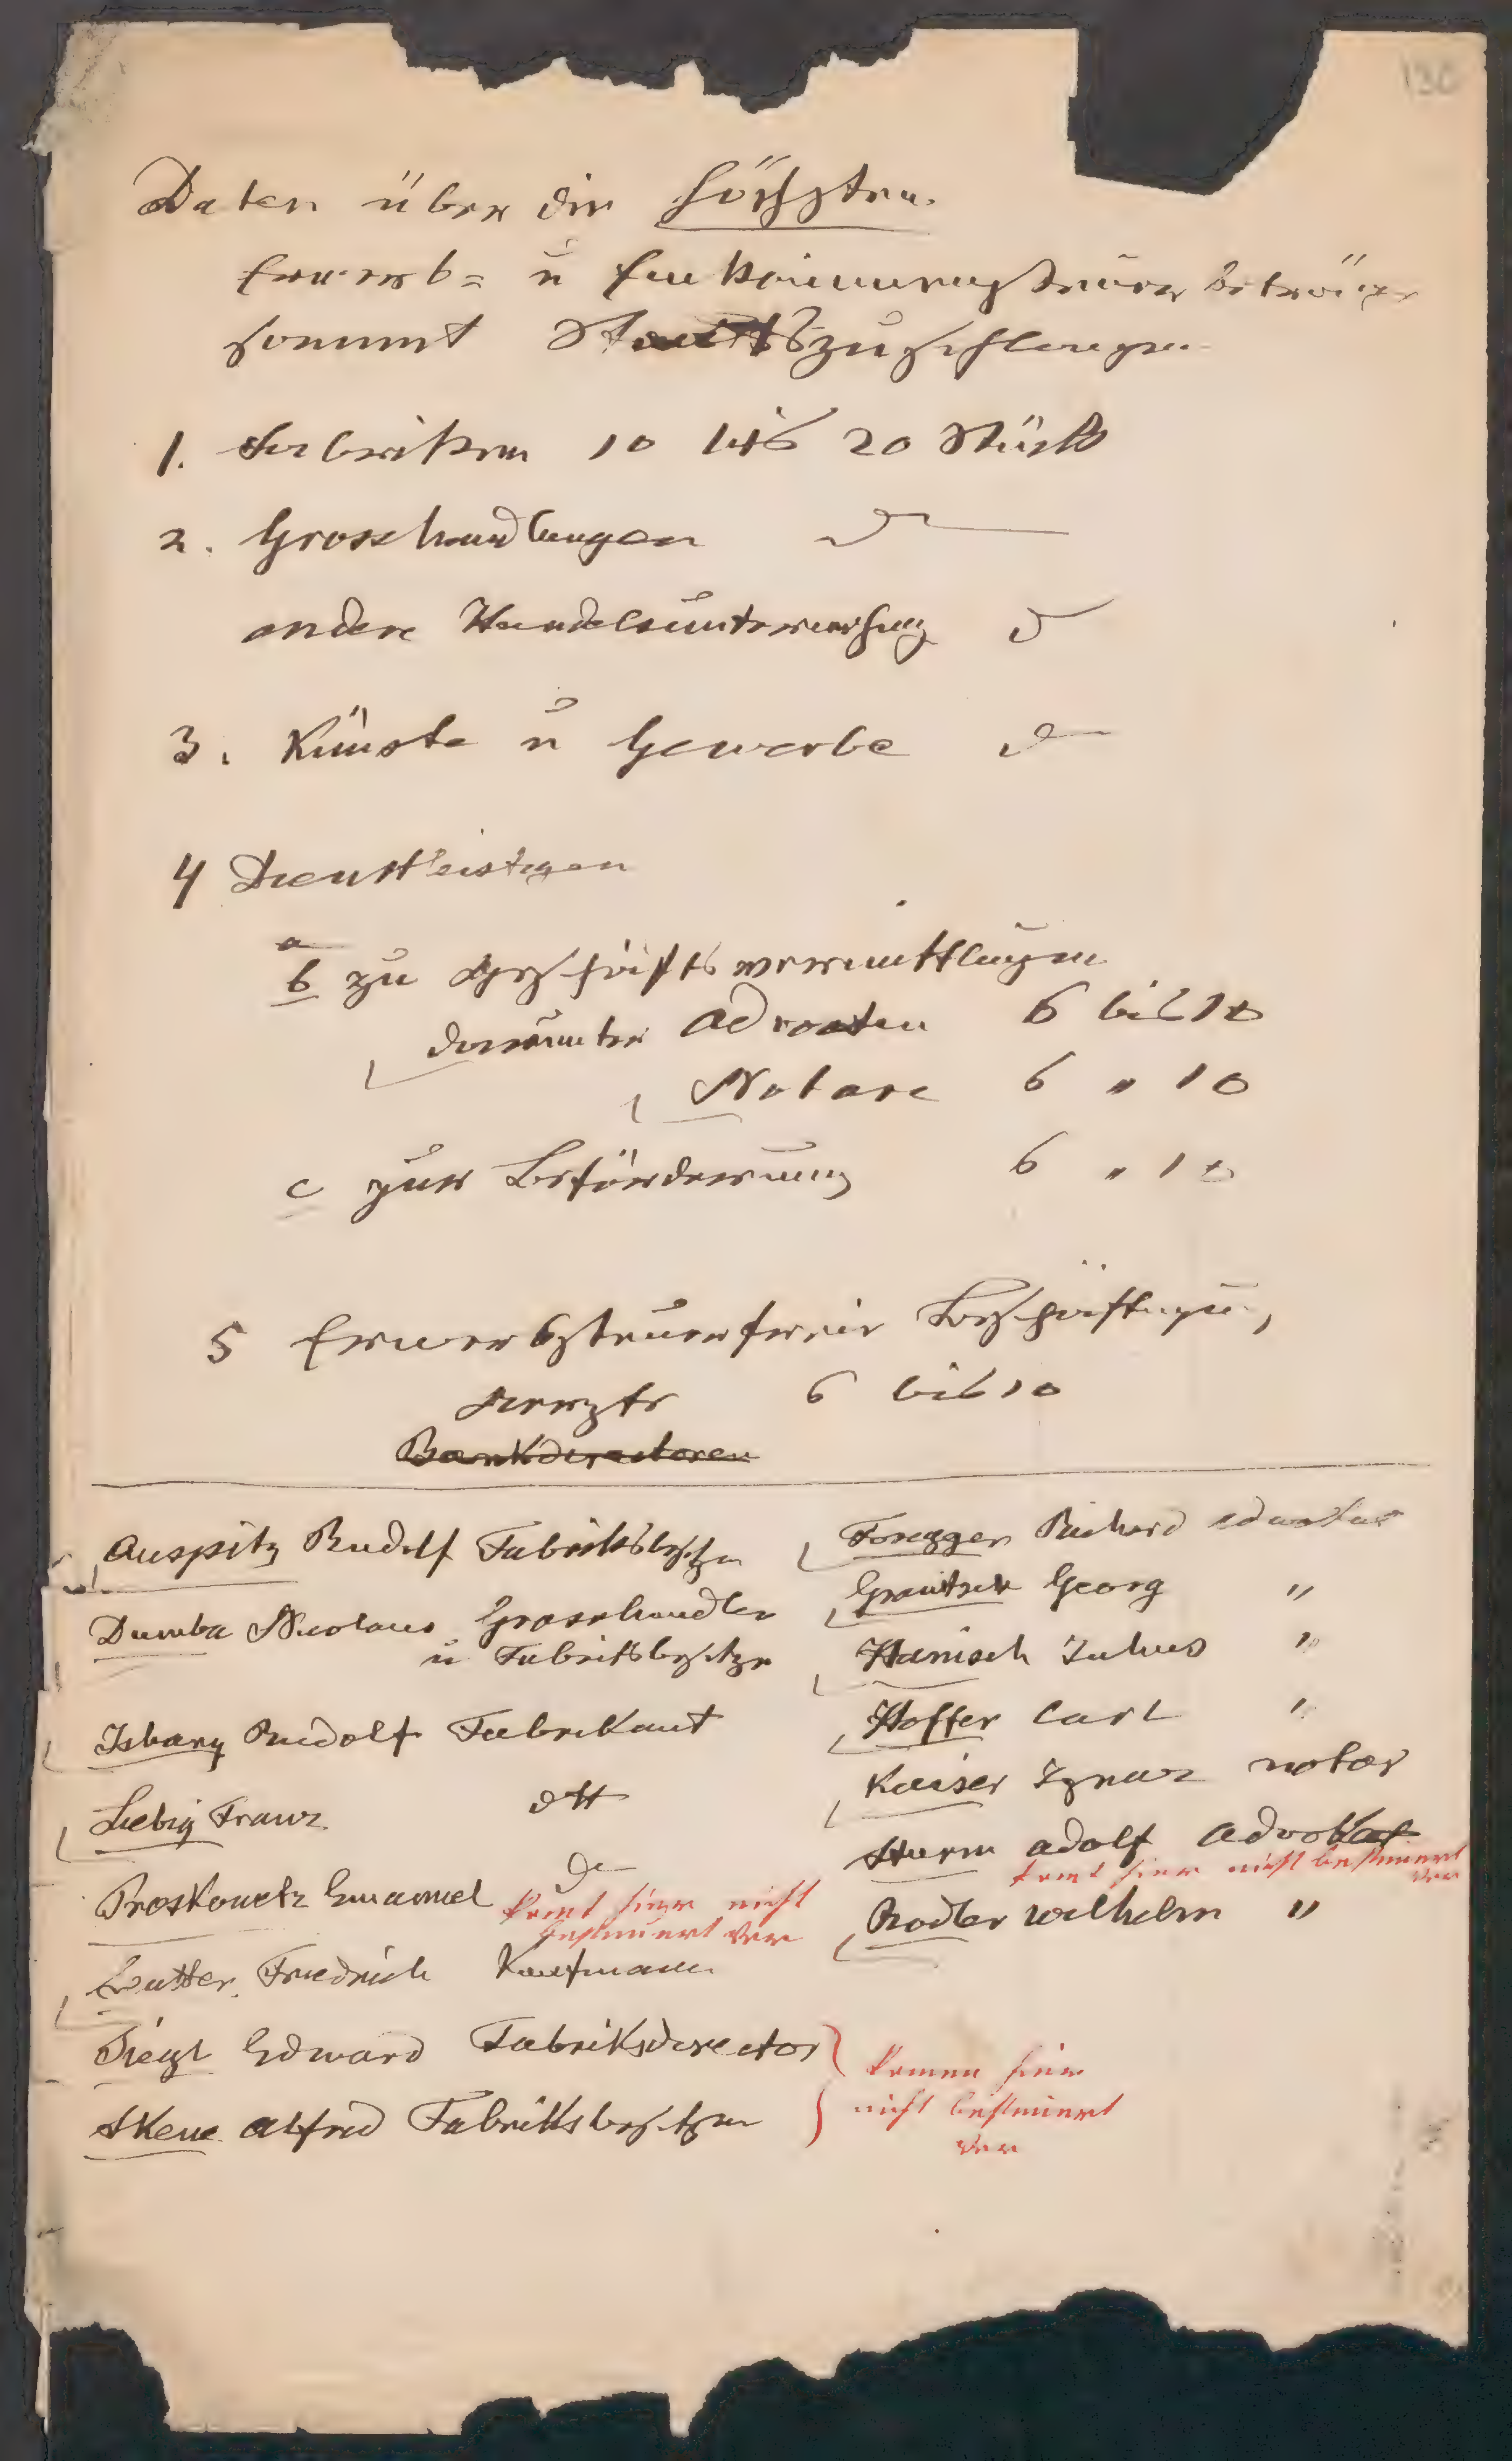 130
Daten über die höchsten
Erwerb= u Einkommensteuerbeträge
sammt Staatszuschlägen
1. Fabriken 10 bis 20 Stück
2. Grosshandlungen dto
andere Handelsunternehmung dto
3. Künste u Gewerbe dto
4 Dienstleistgen
a
b zu Geschäftsvermittlungen
darunter Advocaten 6 bis 10
Notare 6 " 10
c zur Beförderung 6 " 10
5 Erwerbsteuerfreie Beschäftigung,
Aerzte 6 bis 10
Bankdirectoren
Auspitz Rudolf Fabriksbesitzer
Dumba Nicolaus Grosshandler
u Fabriksbesitzer
Isbary Rudolf Fabrikant
Liebig Franz dtt
Proskowetz Emanuel do
komt hier nicht
besteuert vor
Sutter Friedrich Kaufmann
Siegl Edward Fabriksdirector
Skene Alfred Fabriksbesitzer
komen hier
nicht besteuert
vor
Foregger Richard Advokat
Granitsch Georg "
Hanisch Julius "
Hoffer Carl "
Kaiser Ignaz Notar
Sturm Adolf Advokat
komt hier nicht besteuert
vor
Rodler Wilhelm "